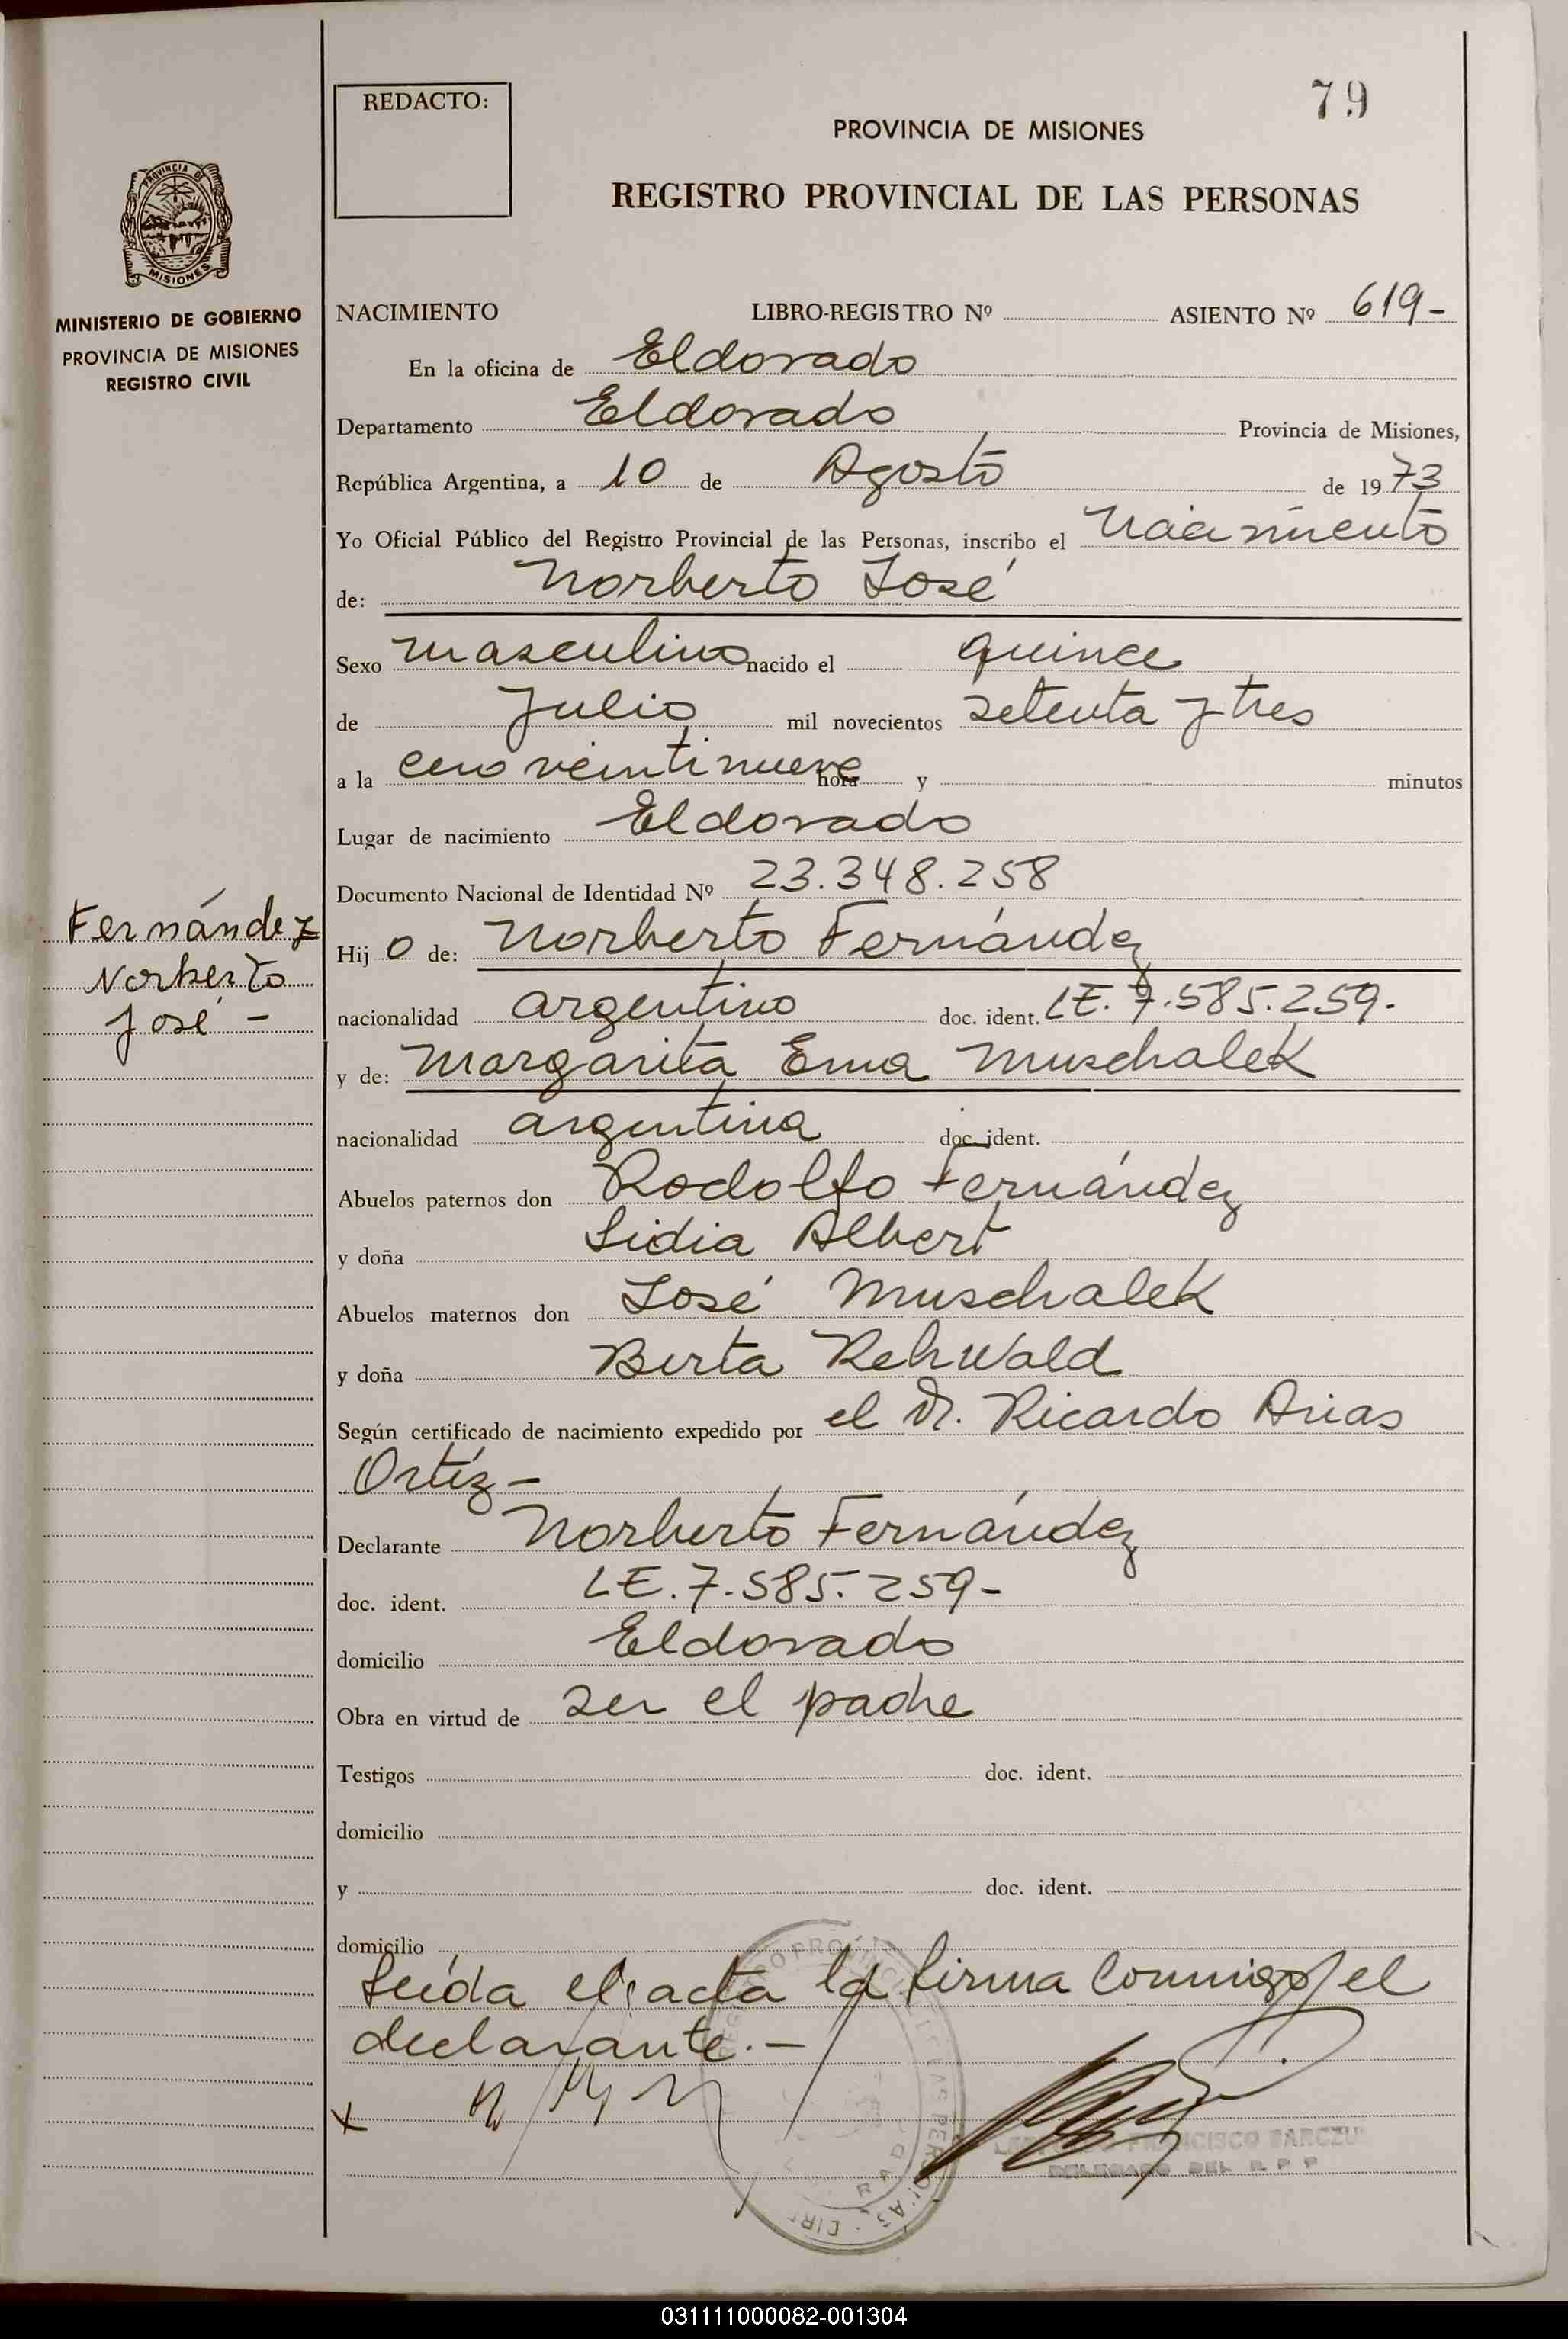 79
REDACTO:
PROVINCIA DE MISIONES
REGISTRO PROVINCIAL DE LAS PERSONAS
PROVINCIA DE
MISIONES
MINISTERIO DE GOBIERNO
PROVINCIA DE MISIONES
REGISTRO CIVIL
NACIMIENTO LIBRO-REGISTRO Nº ASIENTO Nº 619-
En la oficina de Eldorado
Departamento Eldorado Provincia de Misiones,
República Argentina, a 10 de Agosto de 1973
Yo Oficial Público del Registro Provincial de las Personas, inscribo el nacimiento
de: Norberto José
Sexo masculino nacido el quince
de Julio mil novecientos setenta y tres
a la cero veintinueve hora y minutos
Lugar de nacimiento Eldorado
Documento Nacional de Identidad Nº 23.348.258
Fernández
Norberto
José -
Hijo de: Norberto Fernández
nacionalidad argentino doc. ident. LE. 7.585.259.
y de: Margarita Ema Muschalek
nacionalidad argentina doc. ident.
Abuelos paternos don Rodolfo Fernández
y doña Lidia Albert
Abuelos maternos don José Muschalek
y doña Berta Rehwald
Según certificado de nacimiento expedido por el Dr. Ricardo Arias
Ortíz -
Declarante Norberto Fernández
doc. ident. LE. 7.585.259-
domicilio Eldorado
Obra en virtud de ser el padre
Testigos doc. ident.
domicilio
y doc. ident.
domicilio
Leída el acta la firma conmigo el
declarante. -
x
FRANCISCO BARCZUK
DELEGADO DEL R P P
031111000082-001304